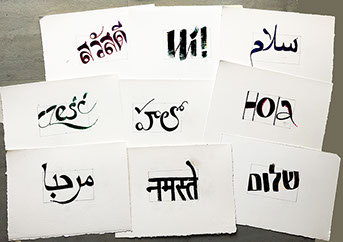 สวัสดี
Hi!
سلام
హలో
Hola
مرحبا
नमस्ते
שלום